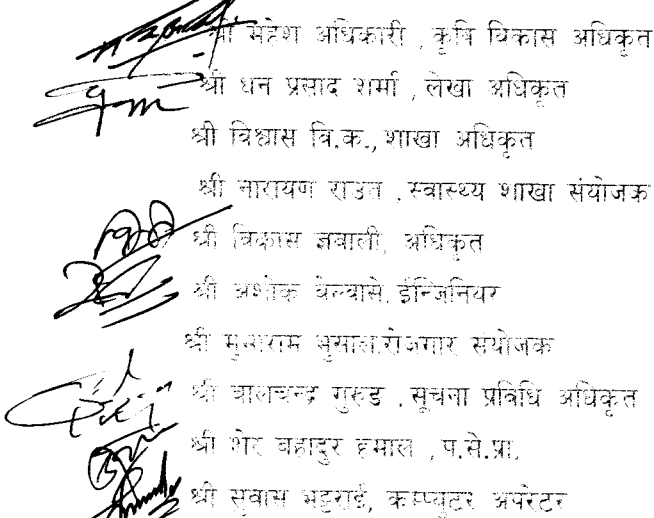 श्री महेश अधिकारी , कृषि विकास अधिकृत
श्री धन प्रसाद शर्मा , लेखा अधिकृत
श्री विश्वास वि.क., शाखा अधिकृत
श्री नारायण राउत , स्वास्थ्य शाखा संयोजक
श्री विकास ज्ञवाली, अधिकृत
श्री अशोक वेल्वासे, ईन्जिनियर
श्री रोजगार संयोजक
श्री बालचन्द्र गुरुङ , सूचना प्रविधि अधिकृत
श्री शेर बहादुर हमाल , प.से.प्रा.
श्री सुवास भट्टराई, कम्प्युटर अपरेटर